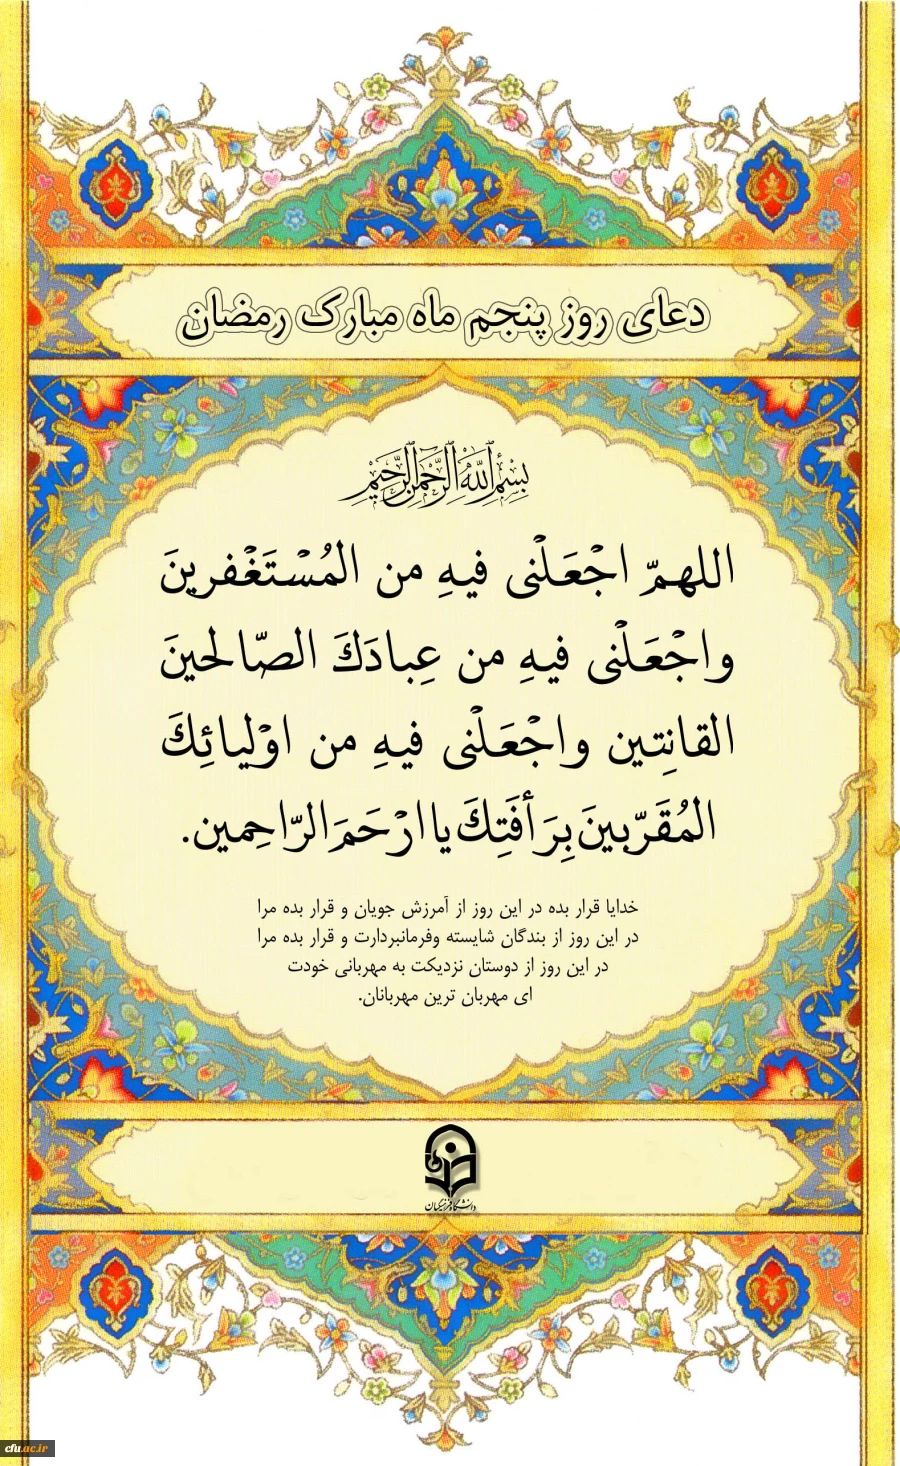 دعای روز پنجم ماه مبارک رمضان
بِسْمِ ٱللَّهِ ٱلرَّحْمَٰنِ ٱلرَّحِيمِ
اللهمّ اجْعَلْنی فیهِ من المُسْتَغْفرینَ
واجْعَلْنی فیهِ من عِبادَكَ الصّالحینَ
القانِتین واجْعَلْنی فیهِ من اوْلیائِكَ
المُقَرّبینَ بِرَأفَتِكَ یا ارْحَمَ الرّاحِمین.
خدایا قرار بده در این روز از آمرزش جویان و قرار بده مرا
در این روز از بندگان شایسته وفرمانبردارت و قرار بده مرا
در این روز از دوستان نزدیکت به مهربانی خودت
ای مهربان ترین مهربانان.
دانشگاه فرهنگیان
cfu.ac.ir